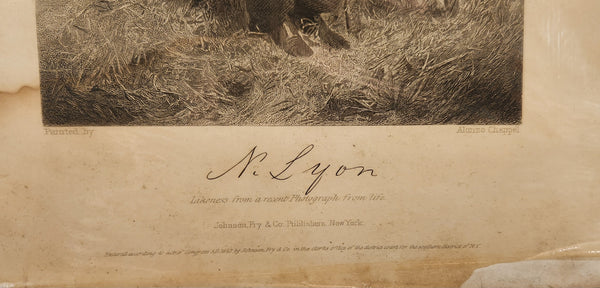 Painted by Alonzo Chappel
N. Lyon
Likeness from a recent Photograph from life.
Johnson, Fry & Co. Publishers, New York.
Entered according to act of Congress A.D. 1862 by Johnson, Fry & Co. in the clerks office of the district court for the southern district of N.Y.